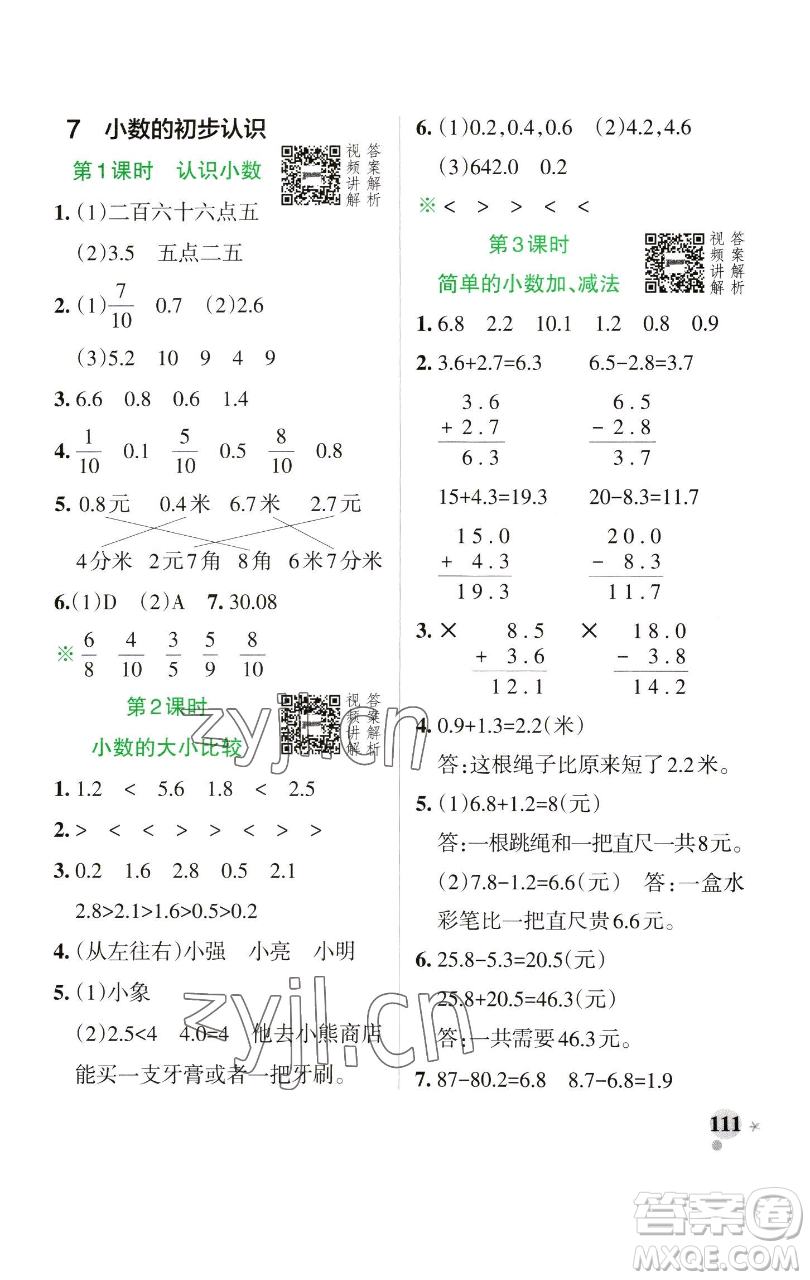 7 小数的初步认识
第1课时 认识小数
视频讲解
答案解析
1. (1)二百六十六点五
(2)3.5 五点二五
2. (1)7/10 0.7 (2)2.6
(3)5.2 10 9 4 9
3. 6.6 0.8 0.6 1.4
4. 1/10 0.1 5/10 0.5 8/10 0.8
5. 0.8元 0.4米 6.7米 2.7元
4分米 2元7角 8角 6米7分米
6.(1)D (2)A 7. 30.08
※ 6/8 4/10 3/5 5/9 8/10
第2课时
小数的大小比较
视频讲解
答案解析
1. 1.2 < 5.6 1.8 < 2.5
2. > < > > < < > >
3. 0.2 1.6 2.8 0.5 2.1
2.8>2.1>1.6>0.5>0.2
4. (从左往右)小强 小亮 小明
5. (1)小象
(2)2.5<4 4.0=4 他去小熊商店
能买一支牙膏或者一把牙刷。
6. (1)0.2,0.4,0.6 (2)4.2,4.6
(3)642.0 0.2
※ < > > < <
第3课时
简单的小数加、减法
视频讲解
答案解析
1. 6.8 2.2 10.1 1.2 0.8 0.9
2. 3.6+2.7=6.3 6.5-2.8=3.7
3.6 6.5
+ 2.7 - 2.8
6.3 3.7
15+4.3=19.3 20-8.3=11.7
15.0 20.0
+ 4.3 - 8.3
19.3 11.7
3. × 8.5 × 18.0
+ 3.6 - 3.8
12.1 14.2
4. 0.9+1.3=2.2(米)
答:这根绳子比原来短了2.2米。
5. (1)6.8+1.2=8(元)
答:一根跳绳和一把直尺一共8元。
(2)7.8-1.2=6.6(元) 答:一盒水
彩笔比一把直尺贵6.6元。
6. 25.8-5.3=20.5(元)
25.8+20.5=46.3(元)
答:一共需要46.3元。
7. 87-80.2=6.8 8.7-6.8=1.9
111
zyjl.cn
zyjl.cn
答案卷
MXQE.COM